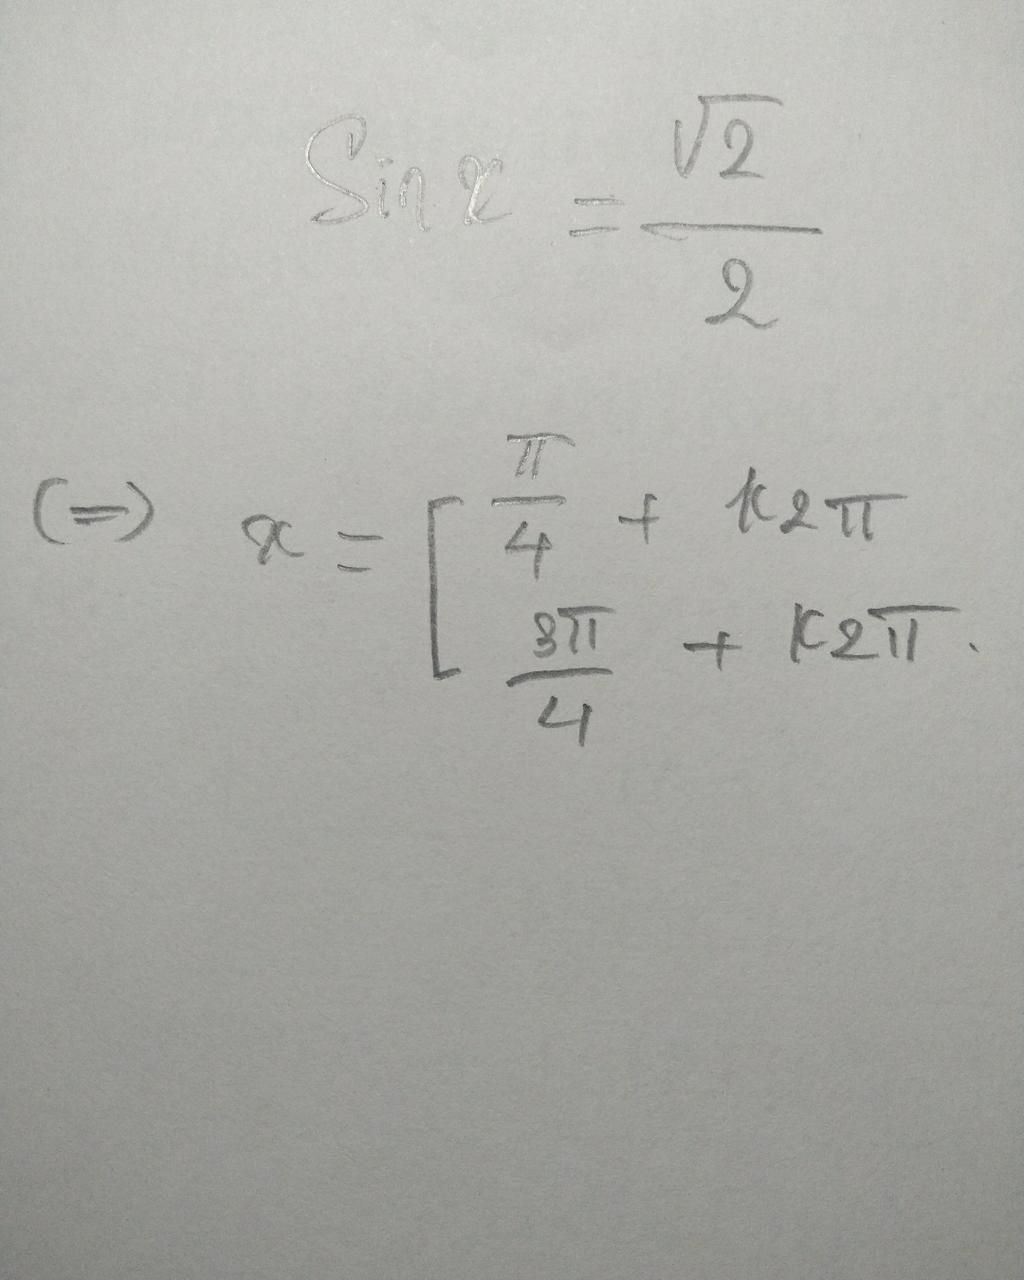 Sin x = √2/2
(=) x = [ π/4 + k2π
3π/4 + k2π.